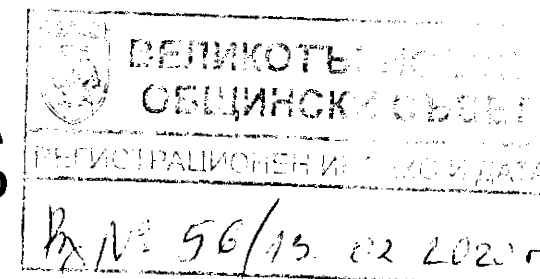 ВЕЛИКОТЪРНОВСКИ
ОБЩИНСКИ СЪВЕТ
РЕГИСТРАЦИОНЕН И ДАТА
Вх № 56/13 02 2020 г